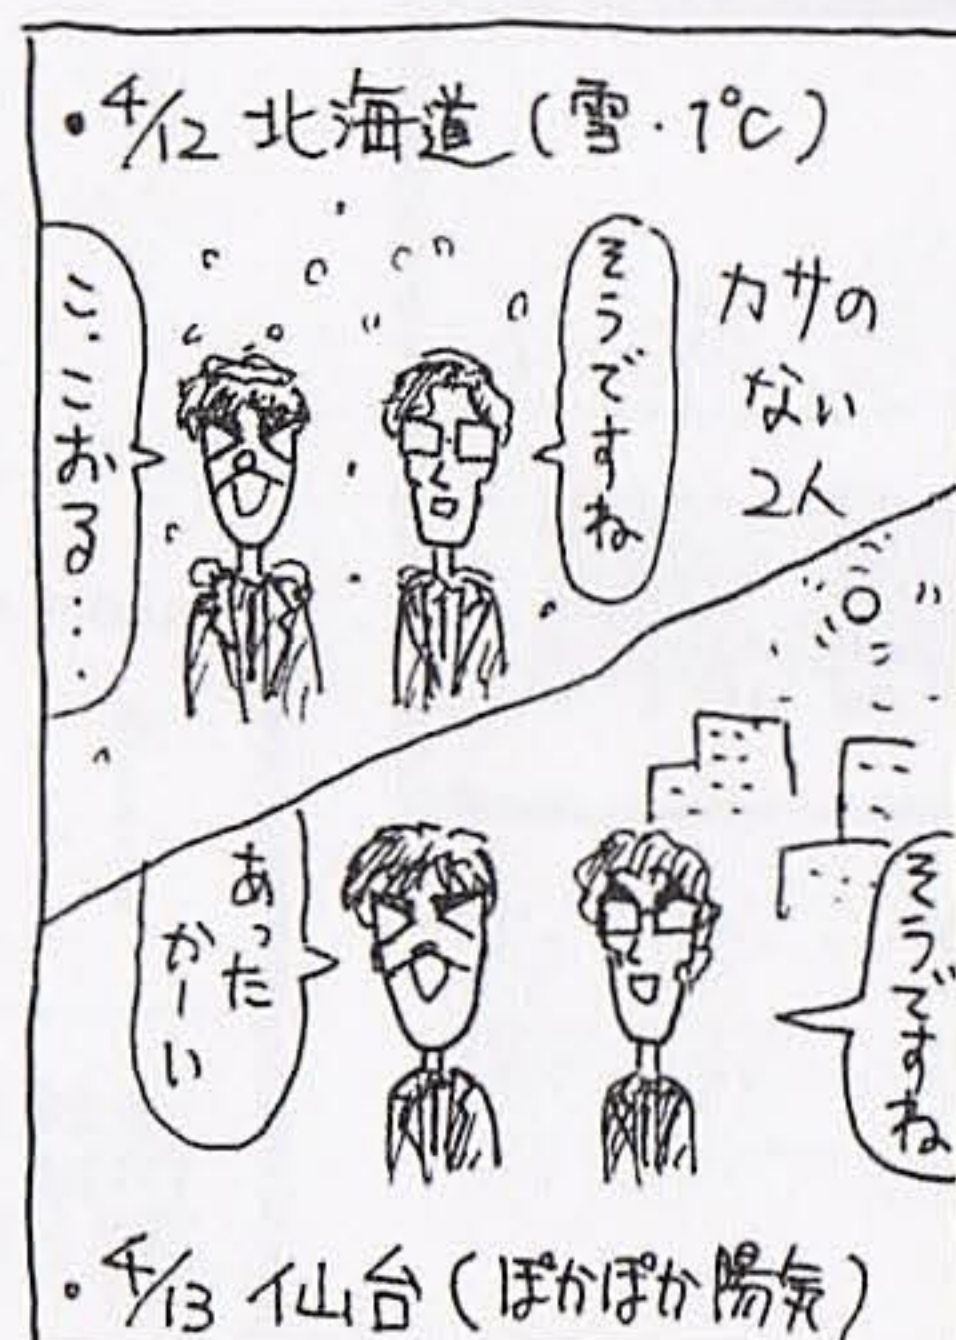 ・4/12 北海道(雪・1℃)
こ、こおる・・・
そうですね
カサの
ない
2人
あった
かーい
そうですね
・4/13 仙台(ぽかぽか陽気)